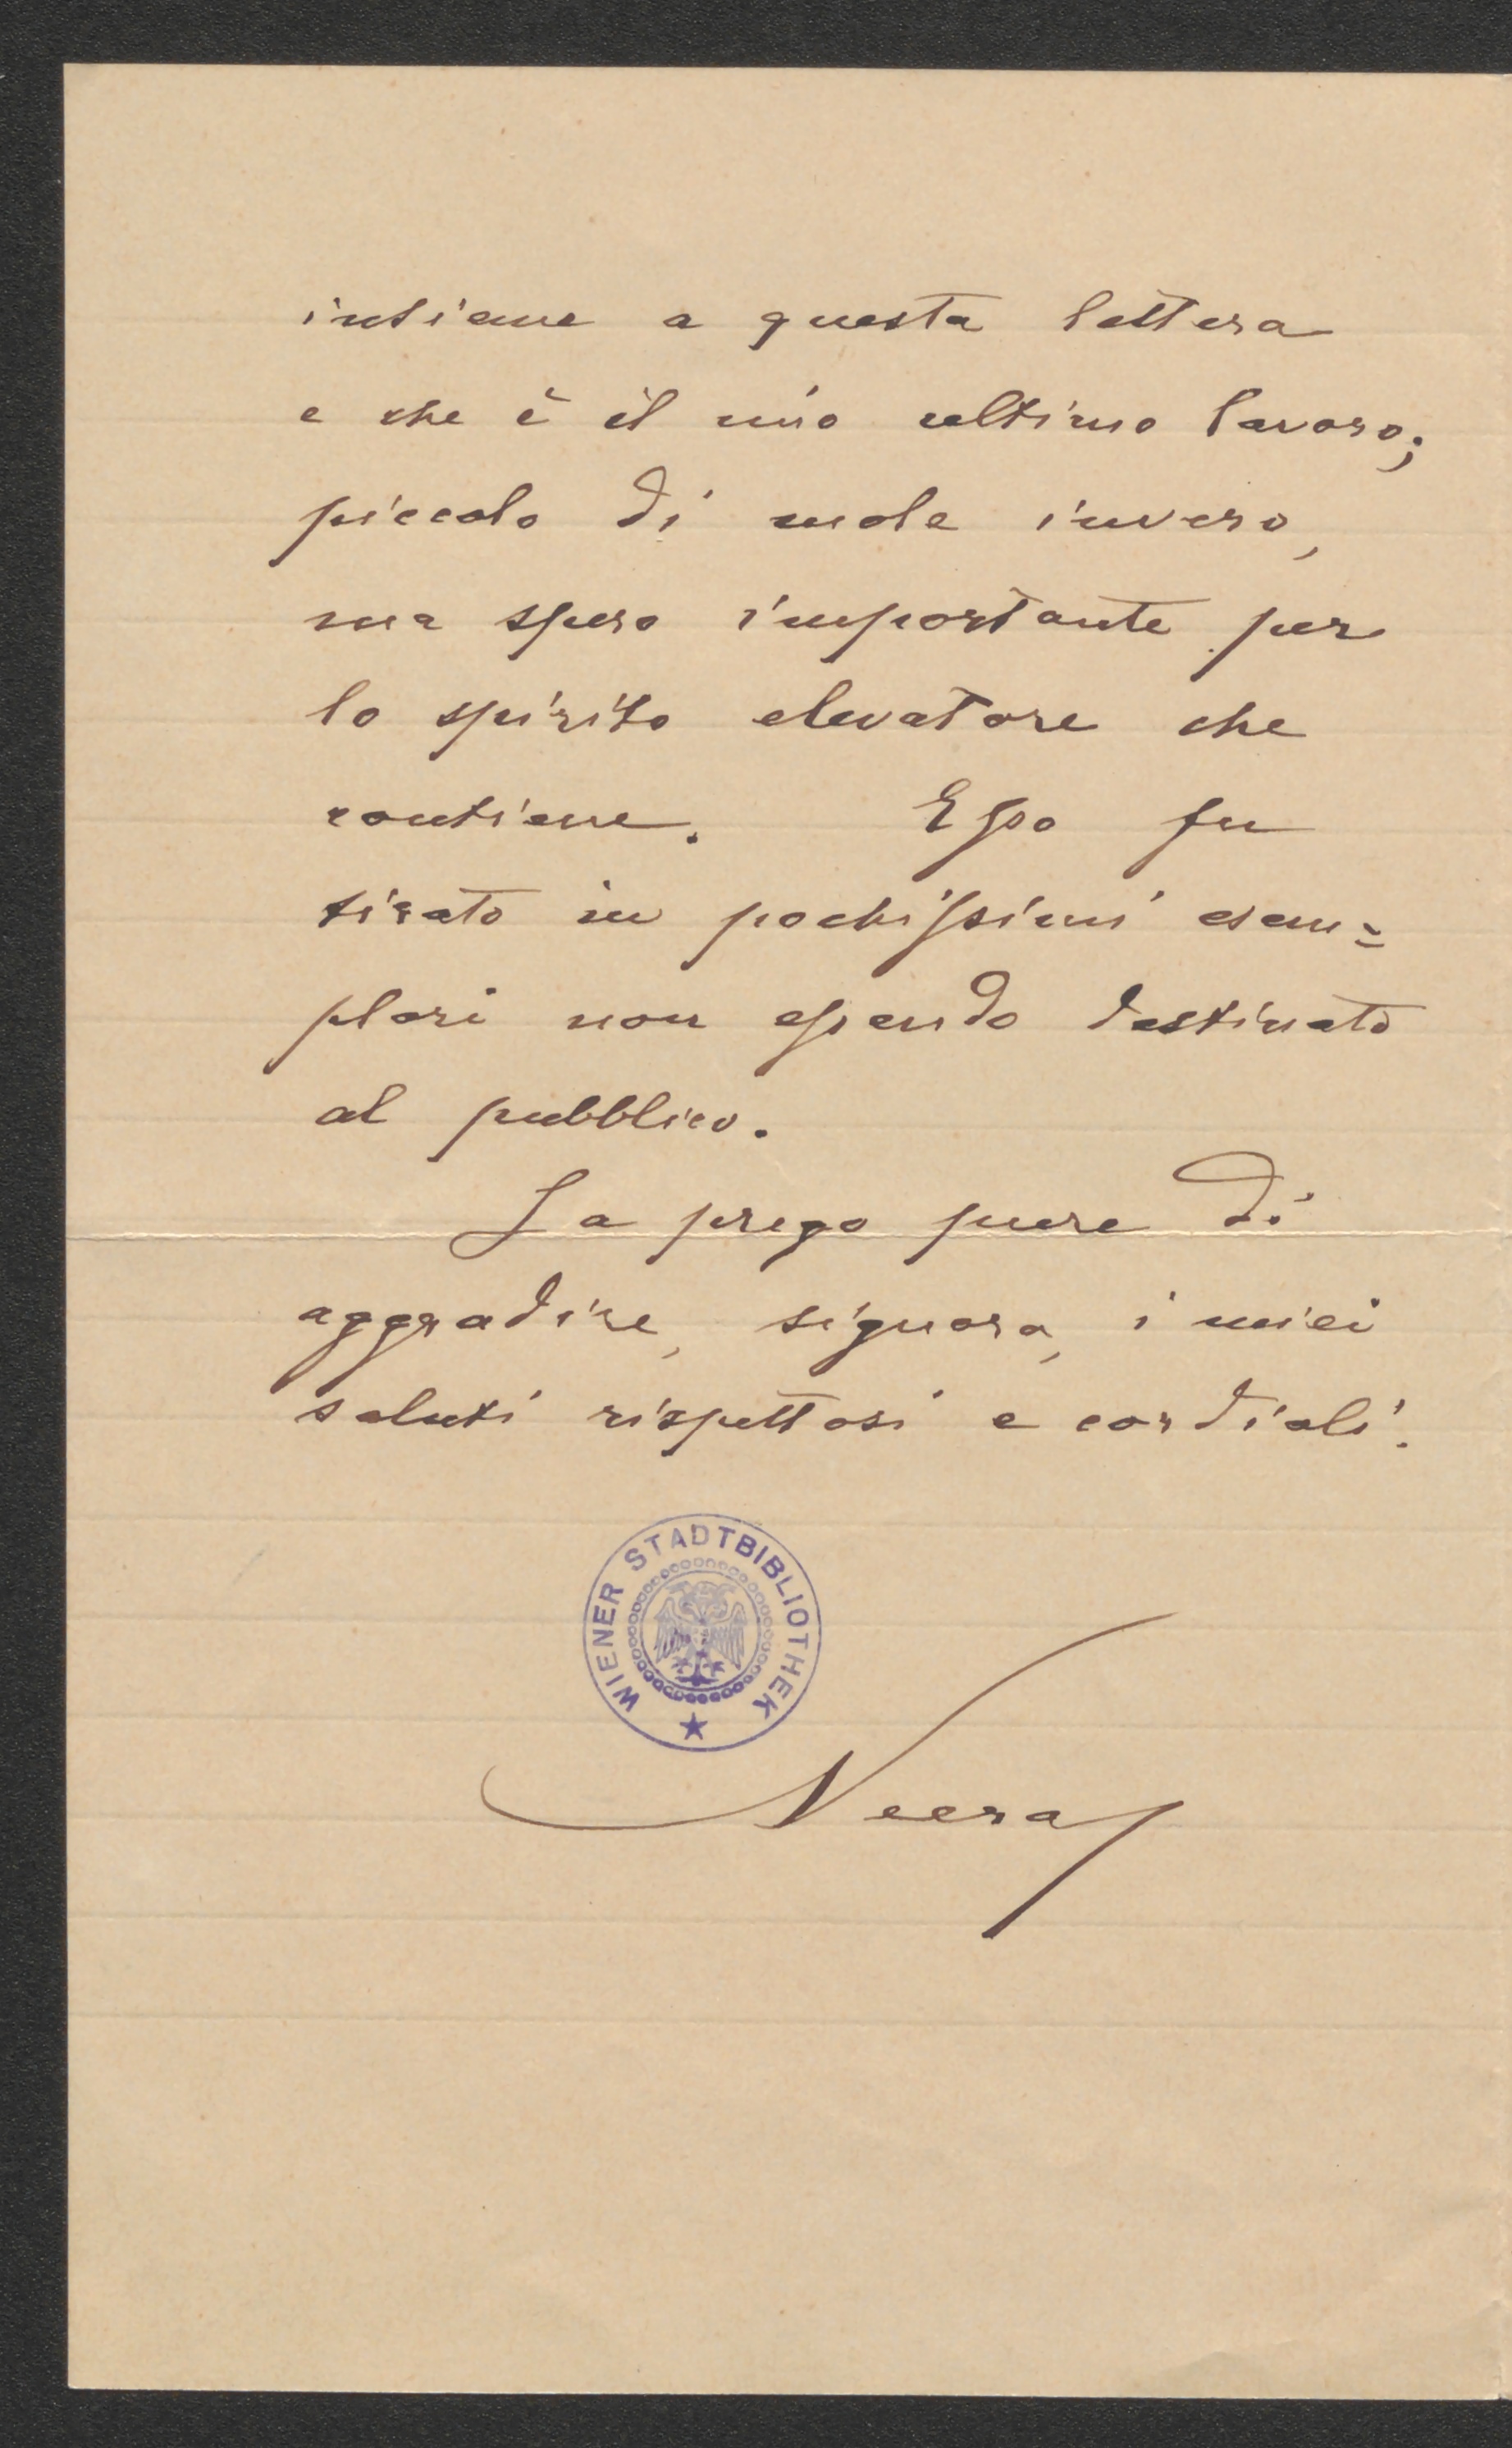 insieme a questa lettera
e che è il mio ultimo lavoro;
piccolo di mole invero,
ma spero importante per
lo spirito elevatore che
contiene. Esso fu
tirato in pochissimi esem=
plari non essendo destinato
al pubblico.
La prego pure di
aggradire, signora, i miei
saluti rispettosi e cordiali.
WIENER STADTBIBLIOTHEK
Neera